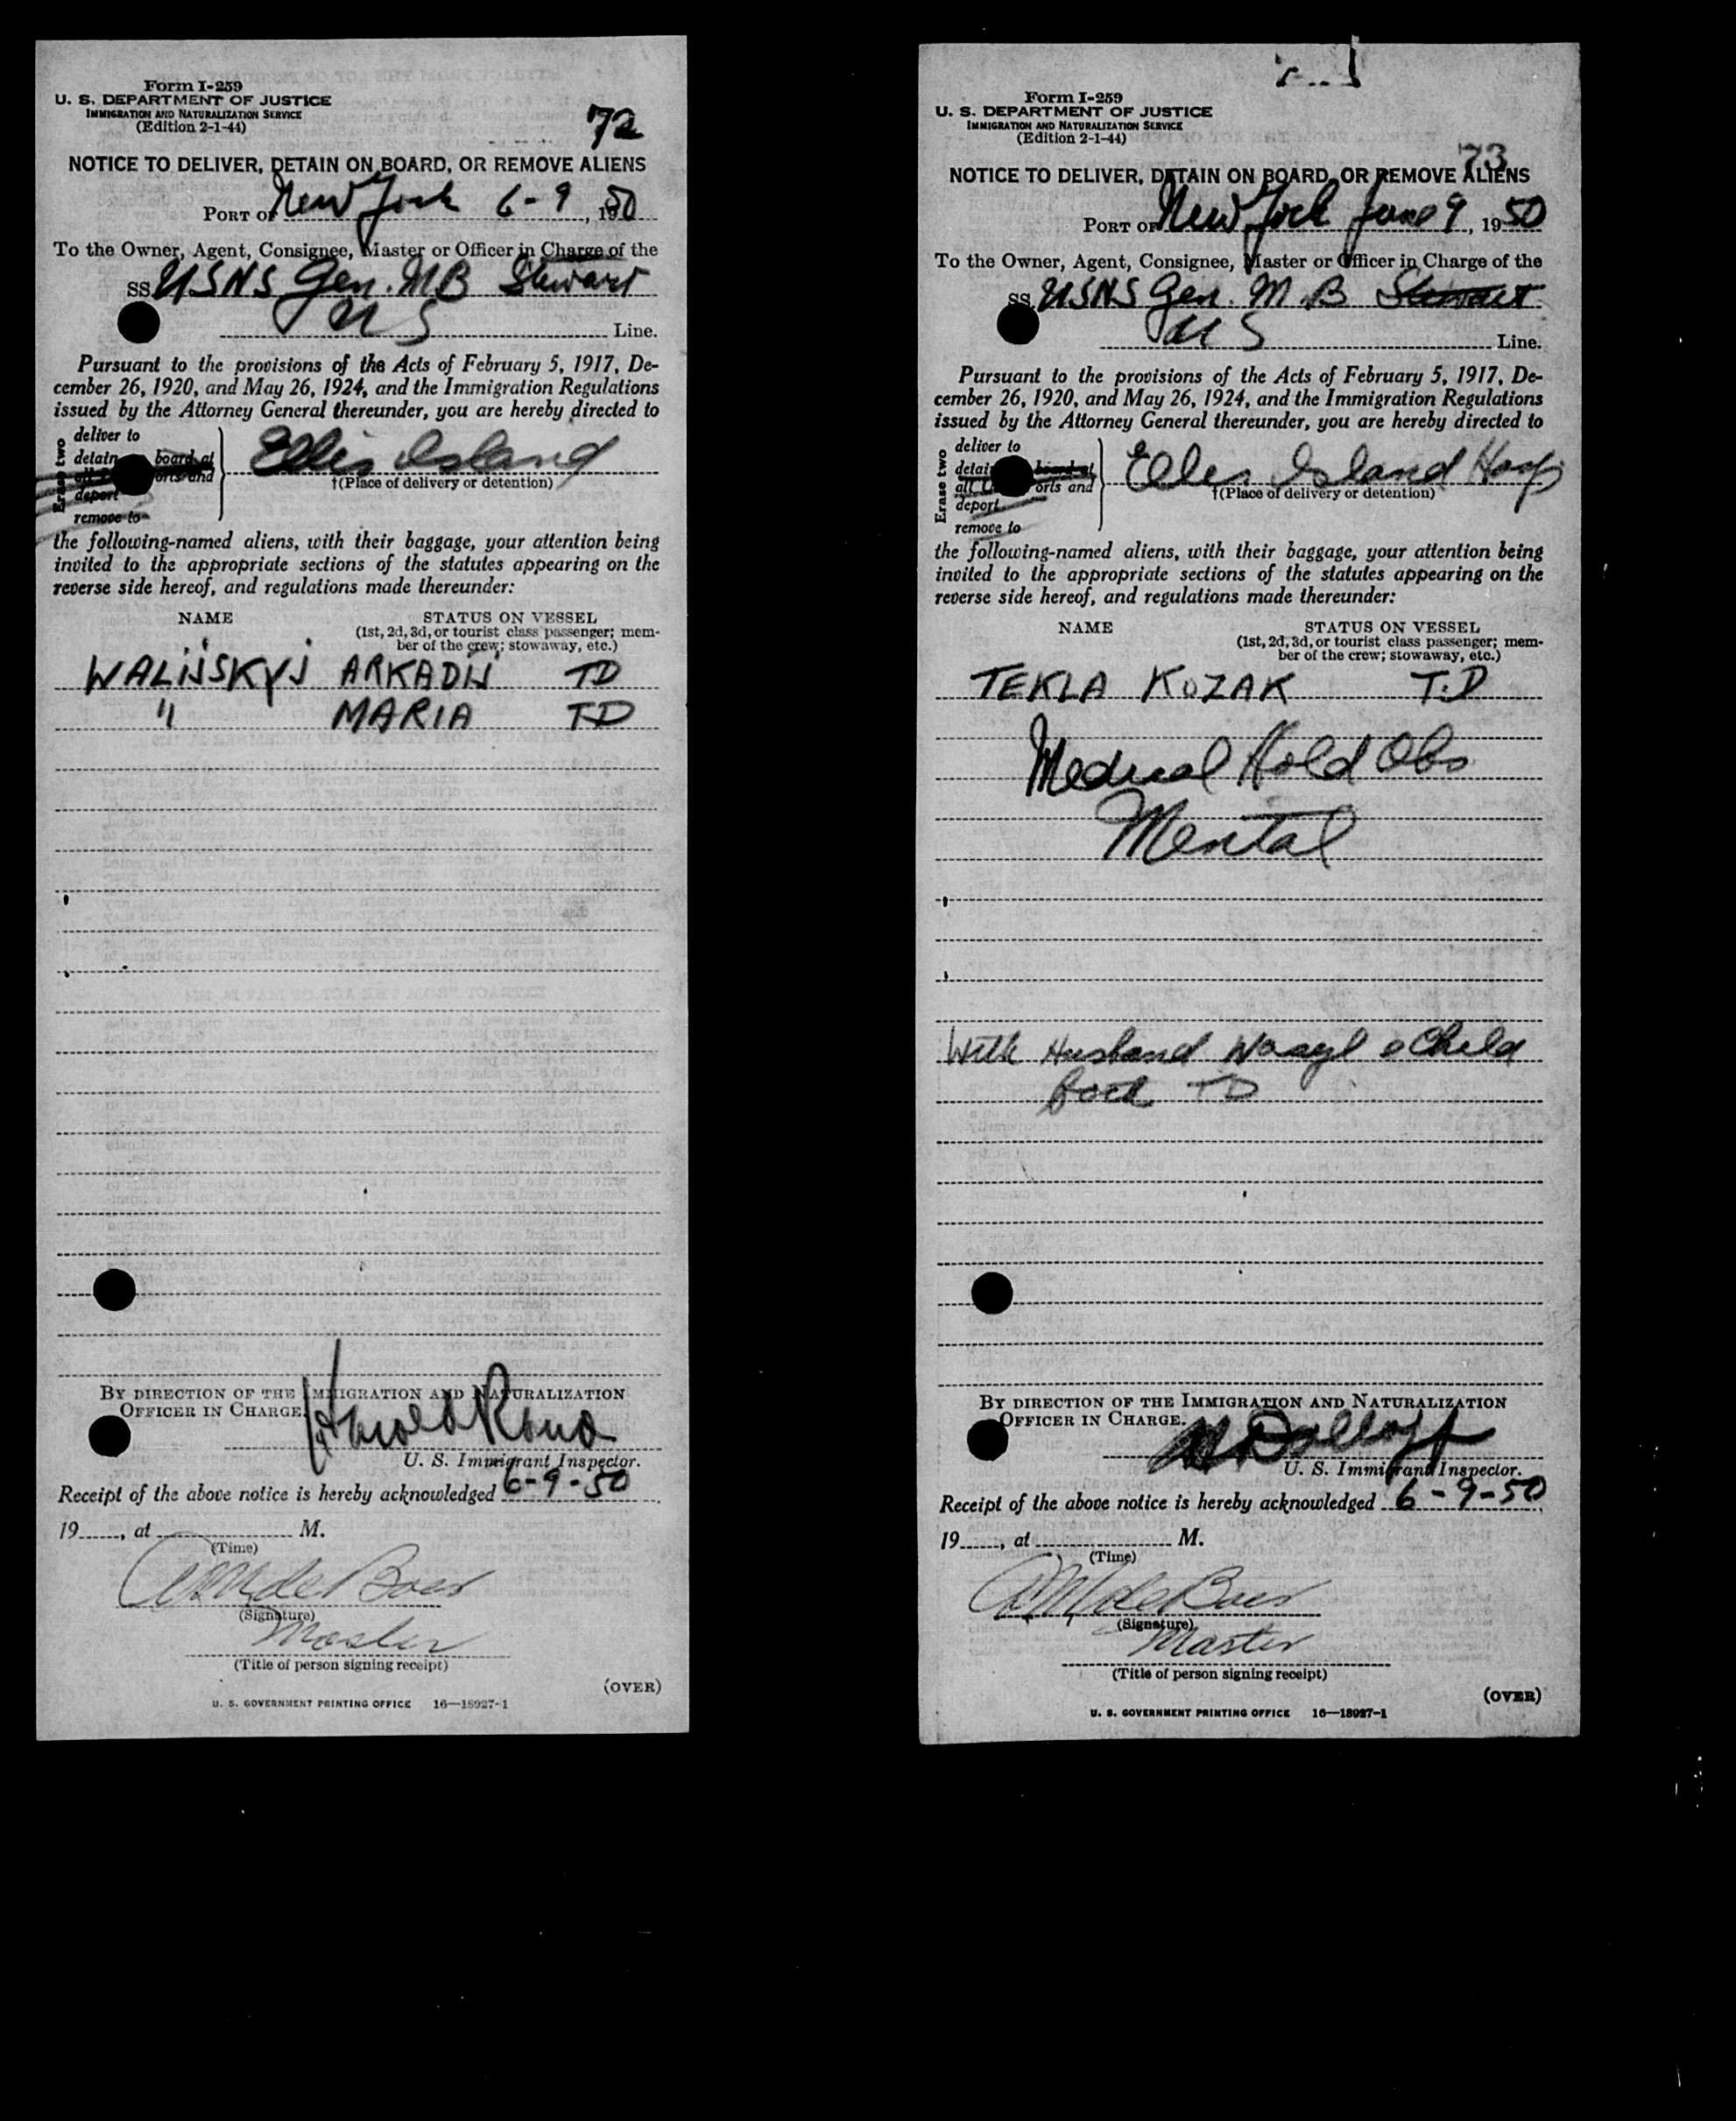 Form I-259
U. S. DEPARTMENT OF JUSTICE
IMMIGRATION AND NATURALIZATION SERVICE
(Edition 2-1-44)
72
NOTICE TO DELIVER, DETAIN ON BOARD, OR REMOVE ALIENS
PORT OF New York 6-9, 1950
To the Owner, Agent, Consignee, Master or Officer in Charge of the
SS USNS Gen. M B Stewart
U S Line.
Pursuant to the provisions of the Acts of February 5, 1917, De-
cember 26, 1920, and May 26, 1924, and the Immigration Regulations
issued by the Attorney General thereunder, you are hereby directed to
Erase two
deliver to
detain board at
orts and
deport
remove to
Ellis Island
†(Place of delivery or detention)
the following-named aliens, with their baggage, your attention being
invited to the appropriate sections of the statutes appearing on the
reverse side hereof, and regulations made thereunder:
NAME STATUS ON VESSEL
(1st, 2d, 3d, or tourist class passenger; mem-
ber of the crew; stowaway, etc.)
WALIJSKYJ ARKADIJ TD
" MARIA TD
BY DIRECTION OF THE IMMIGRATION AND NATURALIZATION
OFFICER IN CHARGE.
Harold
U. S. Immigrant Inspector.
Receipt of the above notice is hereby acknowledged 6-9-50
19, at M.
(Time)
de Boer
(Signature)
Master
(Title of person signing receipt)
(OVER)
U. S. GOVERNMENT PRINTING OFFICE 16—18927-1
Form I-259
U. S. DEPARTMENT OF JUSTICE
IMMIGRATION AND NATURALIZATION SERVICE
(Edition 2-1-44)
73
NOTICE TO DELIVER, DETAIN ON BOARD, OR REMOVE ALIENS
PORT OF New York June 9, 1950
To the Owner, Agent, Consignee, Master or Officer in Charge of the
SS USNS Gen. M B Stewart
U S Line.
Pursuant to the provisions of the Acts of February 5, 1917, De-
cember 26, 1920, and May 26, 1924, and the Immigration Regulations
issued by the Attorney General thereunder, you are hereby directed to
Erase two
deliver to
detain board at
all orts and
deport
remove to
Ellis Island Hosp
†(Place of delivery or detention)
the following-named aliens, with their baggage, your attention being
invited to the appropriate sections of the statutes appearing on the
reverse side hereof, and regulations made thereunder:
NAME STATUS ON VESSEL
(1st, 2d, 3d, or tourist class passenger; mem-
ber of the crew; stowaway, etc.)
TEKLA KOZAK T.D
Medical Hold Obs
Mental
With Husband Wasyl & Child
Both TD
BY DIRECTION OF THE IMMIGRATION AND NATURALIZATION
OFFICER IN CHARGE.
U. S. Immigrant Inspector.
Receipt of the above notice is hereby acknowledged 6-9-50
19, at M.
(Time)
de Boer
(Signature)
Master
(Title of person signing receipt)
(OVER)
U. S. GOVERNMENT PRINTING OFFICE 16—18927-1